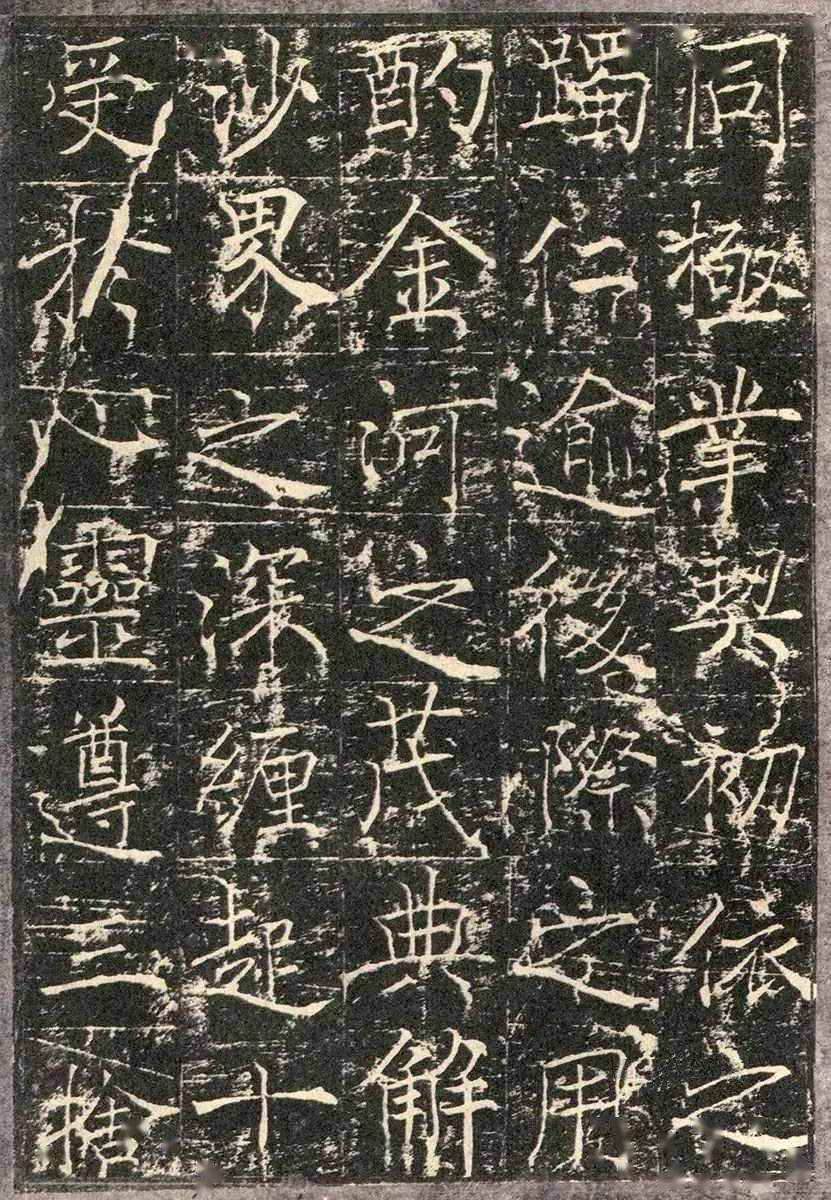 同極業契初依之
躅仁逾後際定用
酌金河之茂典解
沙界之深纏超十
受於靈遵三捨